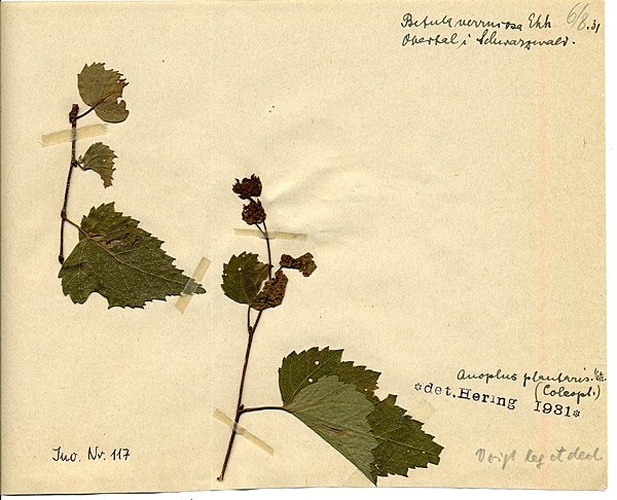 Betula verrucosa Ehh 6/8.31
Obertal i Schwarzwald.
Anoplus plantaris.
(Coleopt.)
*det. Hering 1931*
Inv. Nr. 117
Voigt leg et ded.